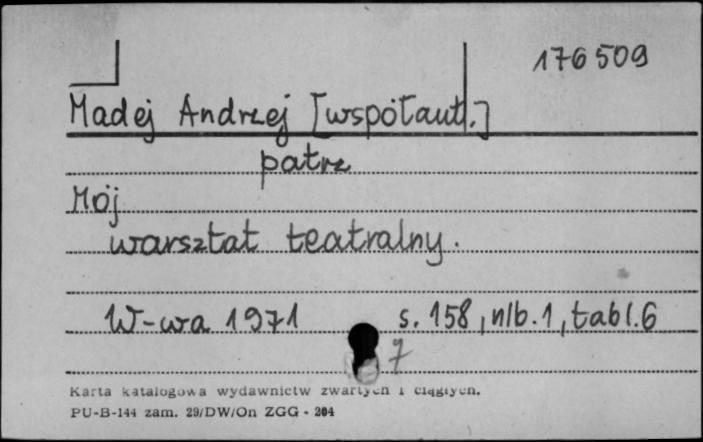 176509
Madej Andrzej [współaut.]
patrz
Mój
warsztat teatralny.
W-wa 1971 s. 158, nlb. 1, tabl. 6
7
Karta katalogowa wydawnictw zwartych i ciągłych.
PU-B-144 zam. 29/DW/On ZGG - 204